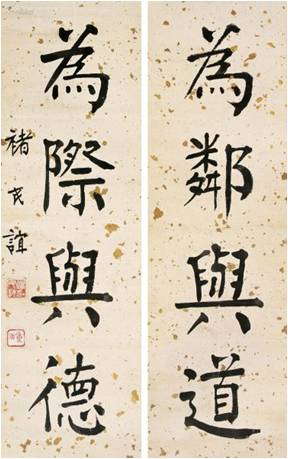 為鄰與道
為際與德
褚民誼